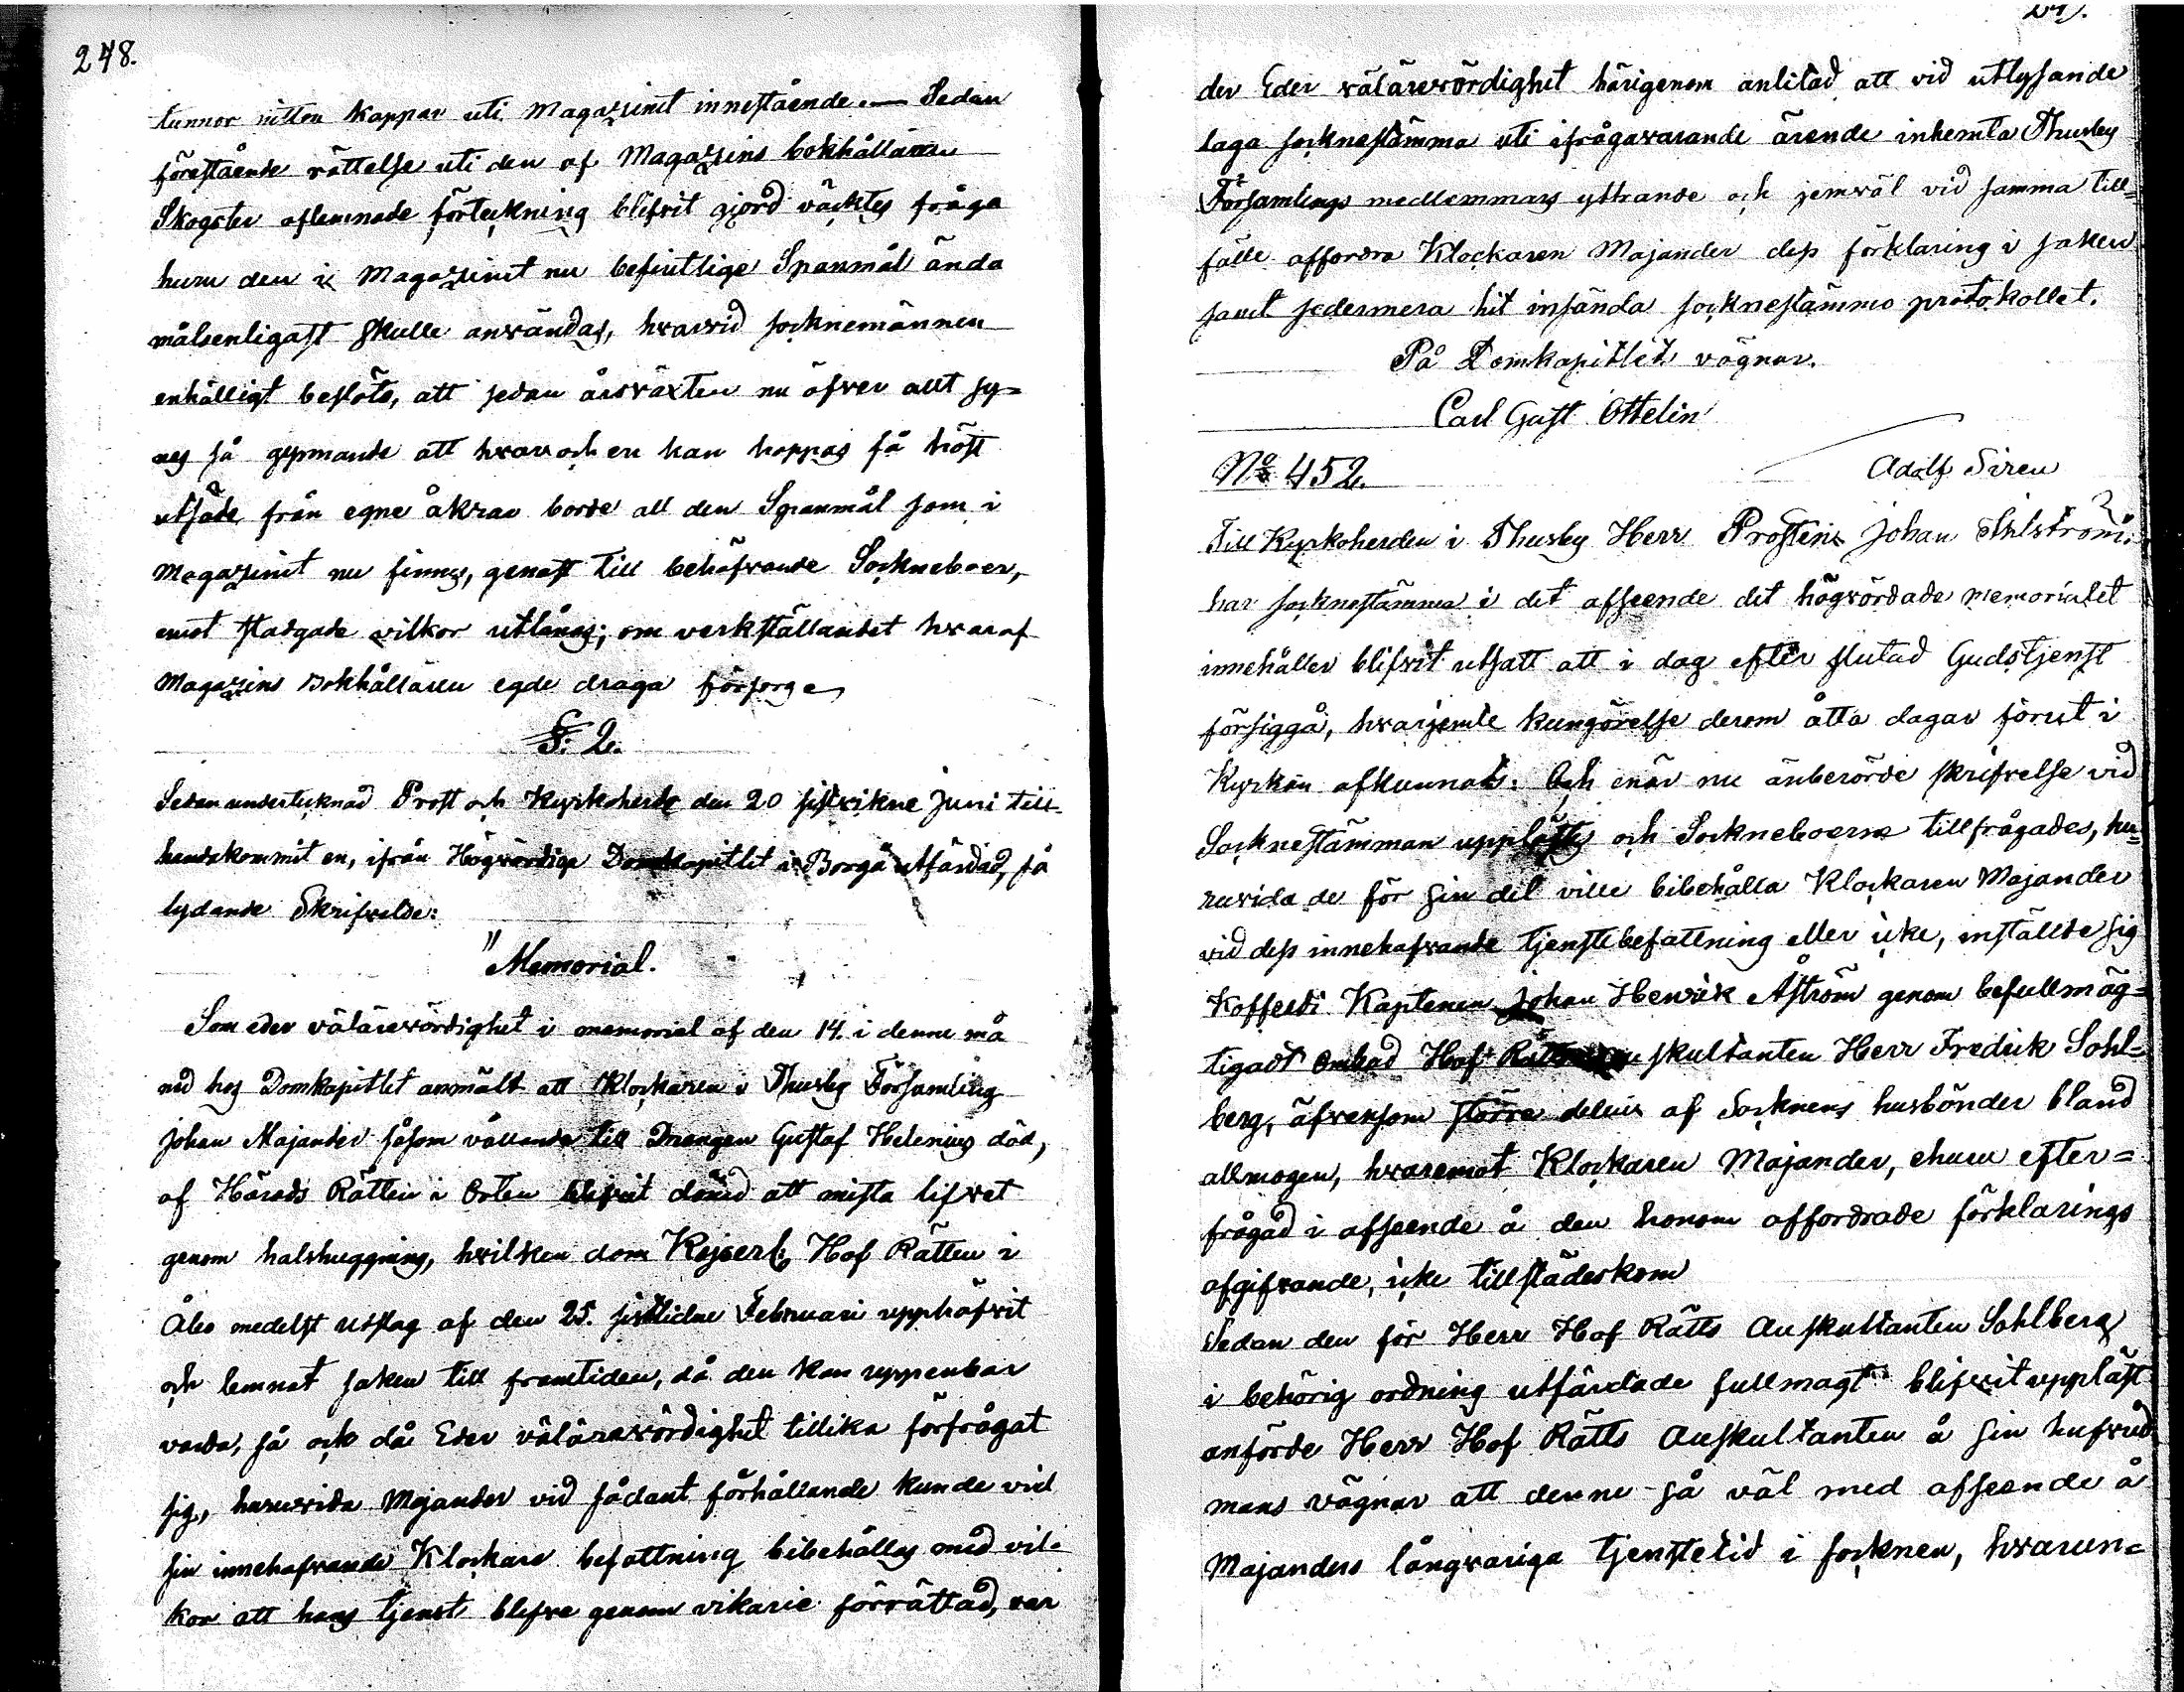 248.
tunnor nitton kappar uti Magazinet innestående — Sedan
förestående rättelse uti den af Magazins bokhållaren
Skogster aflemnade förteckning blifvit gjord väcktes fråga
huru den i Magazinet nu befintlige Spanmål ända
målsenligast skulle användas, hvarvid socknemännen
enhälligt beslöto, att sedan årsväxten nu öfver allt sy=
nes så gynnande att hvar och en kan hoppas få höst
utsäde från egne åkrar borde all den Spanmål som i
Magazinet nu finnes, genast till behöfvande Sockneboer,
emot stadgade vilkor utlånas; om verkställandet hvaraf
Magazins Bokhållaren egde draga försorg
§. 2.
Sedan undertecknad Prost och Kyrkoherde den 20 sistvikne Juni till-
handakommit en, ifrån Högvördige Domkapitlet i Borgå utfärdad, så
lydande Skrifvelse:
"Memorial.
Som eder välärevördighet i memorial af den 14. i denne må
nad hos Domkapitlet anmält att Klockaren i Thusby Församling
Johan Majander såsom vållande till Drengen Gustaf Helenius död,
af Härads Rätten i Orten blifvit dömd att mista lifvet
genom halshuggning, hvilken dom Kejserl. Hof Rätten i
Åbo medelst utslag af den 25. sistlidne Februari upphäfvit
och lemnat saken till framtiden, då den kan uppenbar
varda, så ock då Eder välärevördighet tillika förfrågat
sig, huruvida Majander vid sådant förhållande kunde vid
sin innehafvande Klockare befattning bibehållas med vil-
kor att hans tjenst blefve genom vikarie förrättad, var
249.
der Eder välärevördighet härigenom anlitad att vid utlysande
laga socknestämma uti ifrågavarande ärende inhemta Thusby
Församlings medlemmars yttrande och jemväl vid samma till=
fälle affordra Klockaren Majander dess förklaring i saken
samt sedermera hit insända socknestämmo protokollet.
På Domkapitlets vägnar.
Carl Gust Ottelin
No 452. Adolf Siren
Till Kyrkoherden i Thusby Herr Prosten Johan Ahlström.
har socknestämma i det afseende det högvördade memorialet
innehåller blifvit utsatt att i dag efter slutad Gudstjenst
försiggå, hvarjemte kungörelse derom åtta dagar förut i
Kyrkan afkunnats. Och enär nu änberörde skrifvelse vid
Socknestämman upplästes och Sockneboerne tillfrågades, hu=
ruvida de för sin del ville bibehålla Klockaren Majander
vid dess innehafvande tjenstebefattning eller icke, inställde sig
Kofferdi Kaptenen Johan Henrik Åström genom befullmäg=
tigadt ombud Hof Rätts skultanten Herr Fredrik Sohl=
berg, äfvensom större delen af Socknens husbönder bland
allmogen, hvaremot Klockaren Majander, ehuru efter=
frågad i afseende å den honom affordrade förklarings
afgifvande, icke tillstädeskom
Sedan den för Herr Hof Rätts Auskultanten Sohlberg
i behörig ordning utfärdade fullmagt blifvit uppläst
anförde Herr Hof Rätts Auskultanten å sin hufvud
mans vägnar att denne så väl med afseende å
Majanders långvariga tjenstetid i socknen, hvarun=